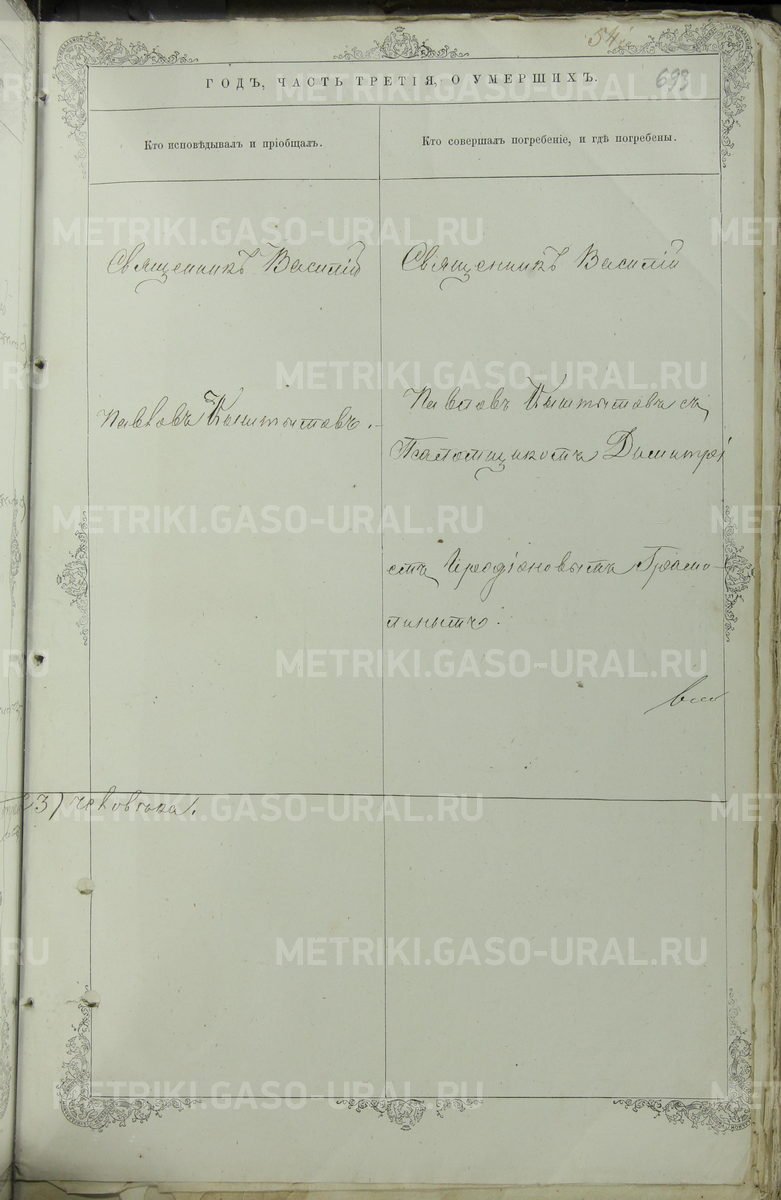 54
693
ГОДЪ, ЧАСТЬ ТРЕТІЯ, О УМЕРШИХЪ.
Кто исповѣдывалъ и пріобщалъ.
Кто совершалъ погребеніе, и гдѣ погребены.
Священникъ Василій
Павловъ Кыштымовъ.
Священникъ Василій
Павловъ Кыштымовъ съ
Псаломщикомъ Димитрі
емъ Иродіоновымъ Грамо-
линымъ.
3) человѣка.
METRIKI.GASO-URAL.RU